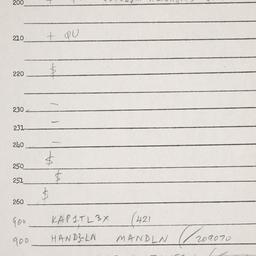 200
210 + QU
220 $
230 —
231 —
240 —
250 $
251 $
260 $
900 KAP1TL3X (421
900 HANDZLN MANDLN (/209070